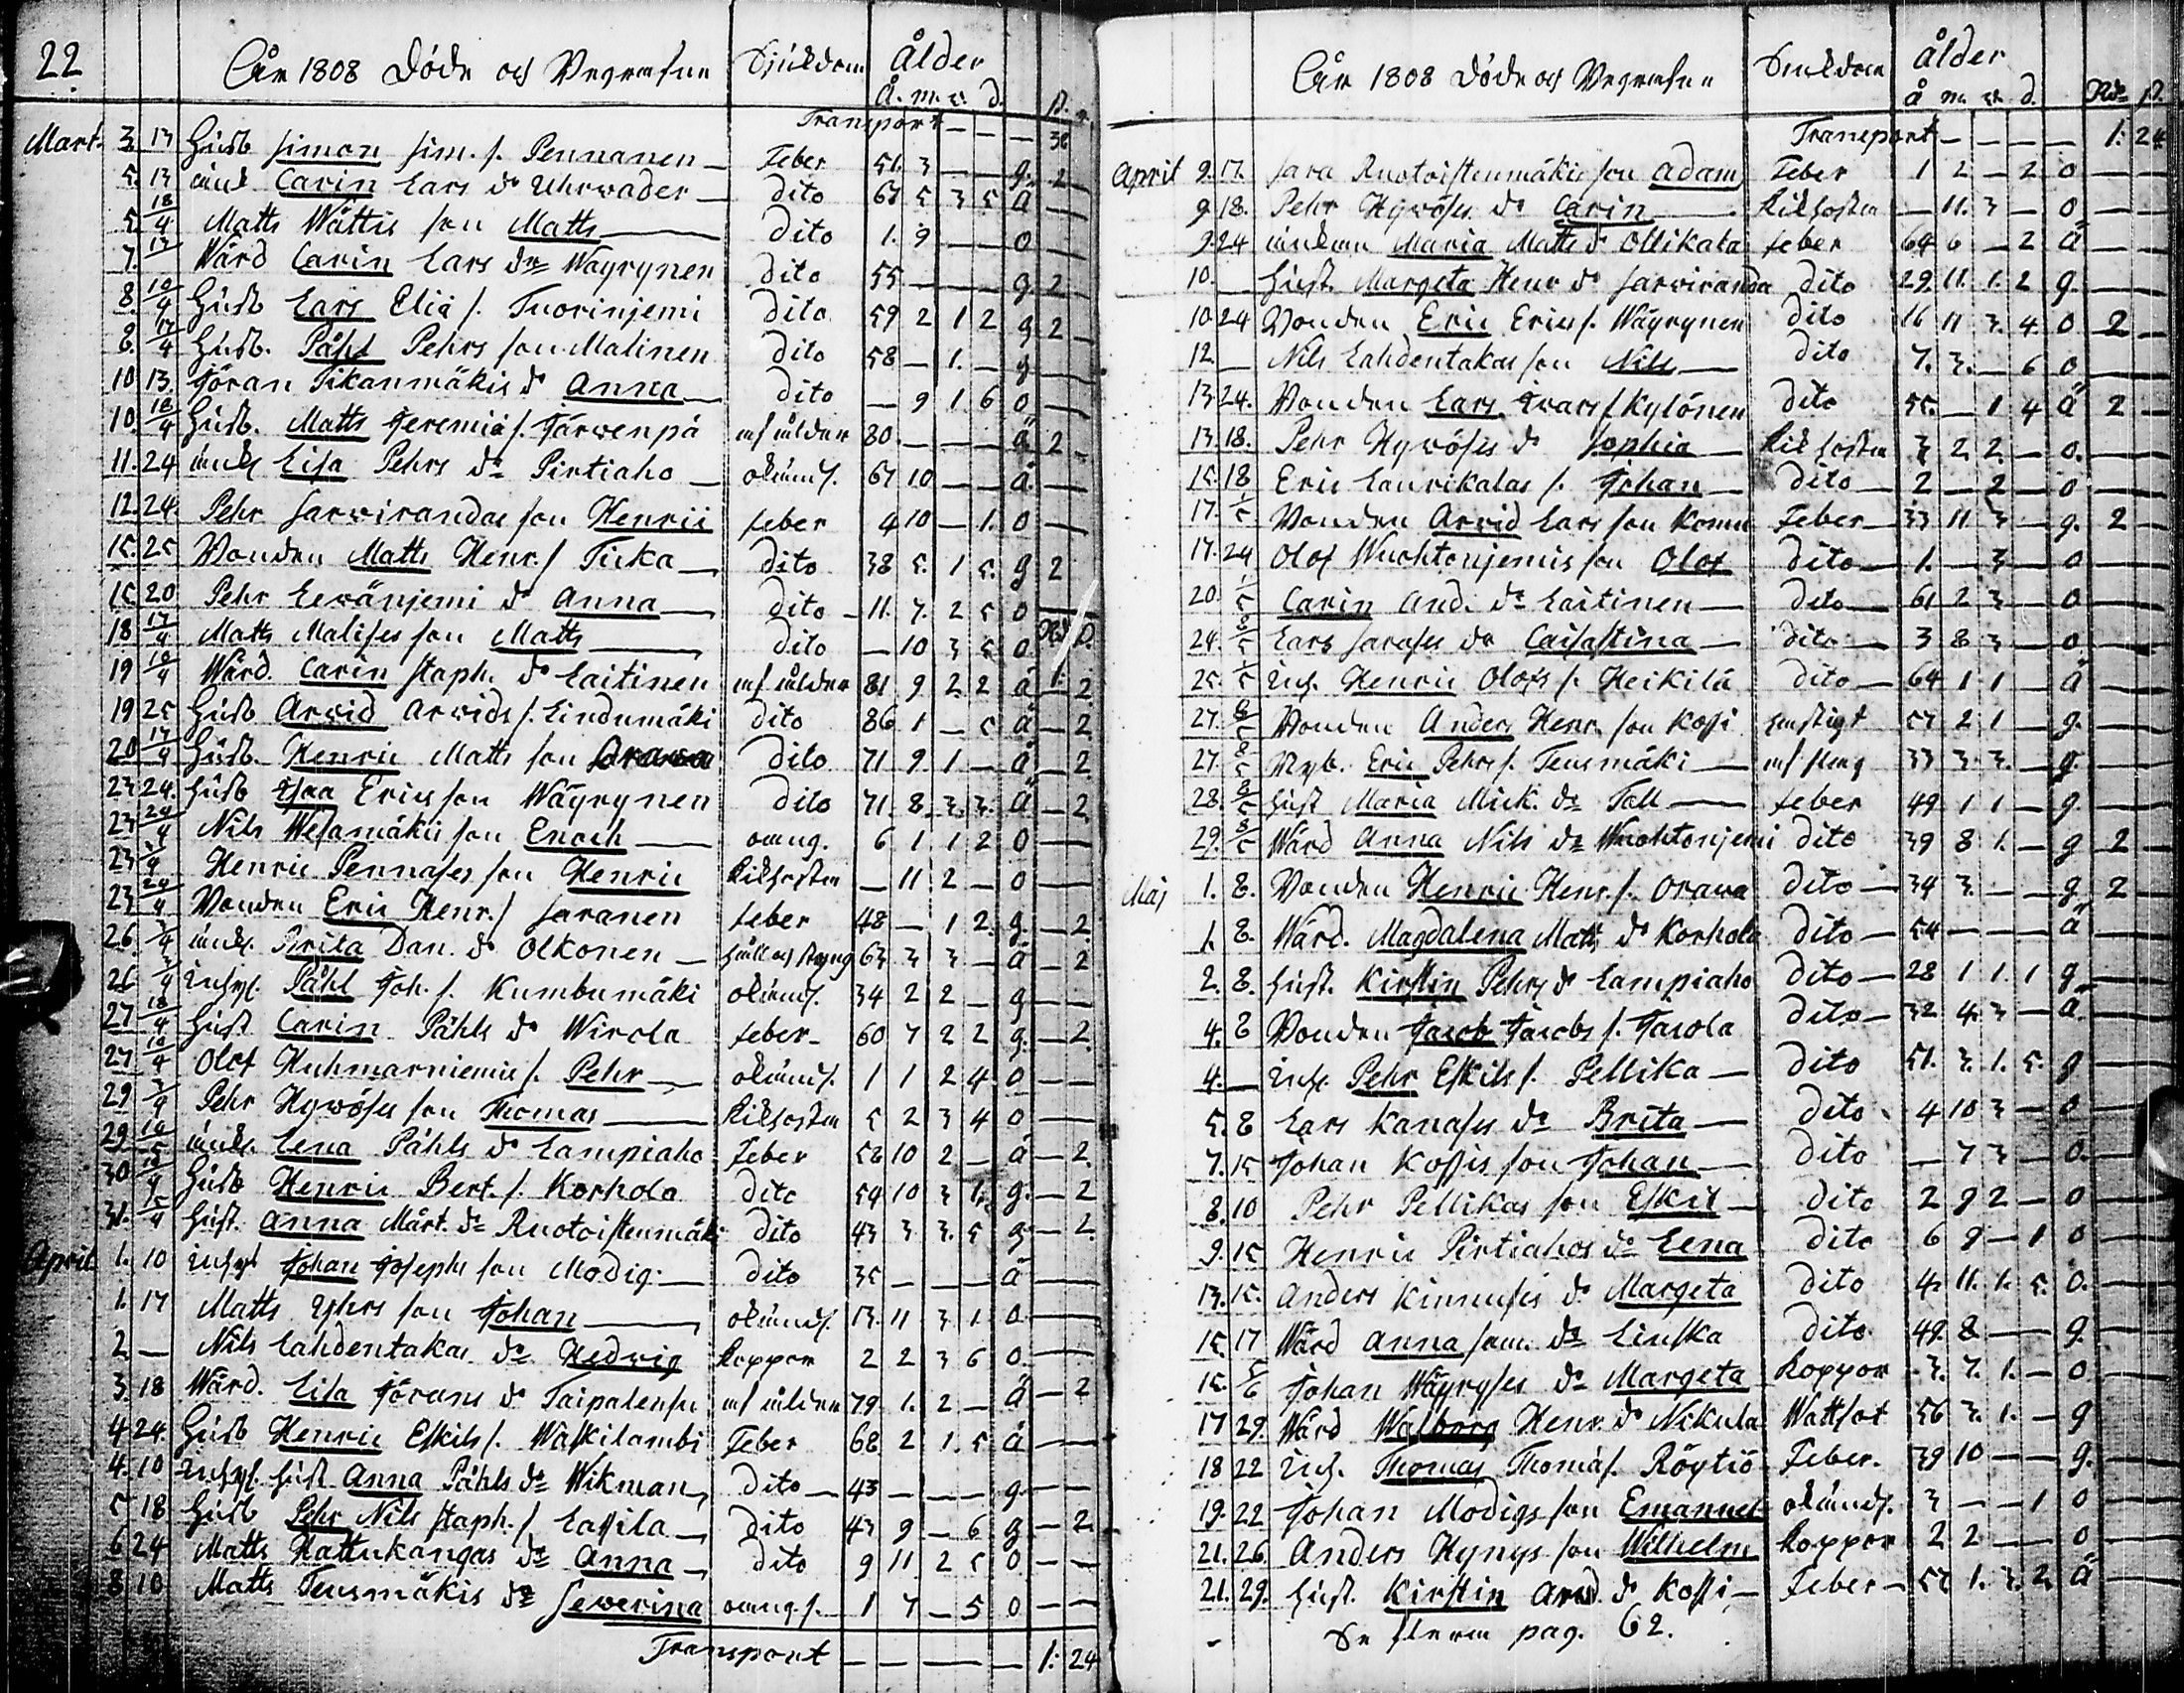 22
År 1808 Döde och Begrafne Sjukdom Ålder
Å. m. v. d. P.
Transport - - - - 38
Mart. 3 13 Husb Simon Sim. s. Pennanen Feber 51. 3 - - g. 2
5. 13 Carin Lars dr Uhrwader dito 67 5 3 5 ä
5 18/4 Matts Wättis son Matts dito 1. 9 - - o
7. 17 Wärd Carin Lars dr Wäyrynen dito 55 - - - g. 2
8. 10/4 Husb Lars Elia s. Tuorinjemi dito 59 2 1 2 g 2
8. 17/4 Husb. Påhl Pehrs son Malinen dito 58 - 1. - g
10 13. Jöran Pikanmäkis dr Anna dito - 9 1 6 o
10. 18/4 Husb. Matts Jeremiä s. Järwenpä af ålder 80 - - - ä 2
11. 24 Lisa Pehrs dr Pirtiaho okänd s. 67 10 - - ä
12. 24. Pehr Sarwirandas son Henric feber 4 10 - 1. o
15. 25 Bonden Matts Henr. s Ticka dito 38 5. 1 5. g 2
15 20 Pehr Lewänjemi dr Anna dito 11. 7. 2 5 o
18 17/4 Matts Malises son Matts dito - 10 3 5 o
19 10/4 Wärd. Carin Staph. dr Laitinen af ålder 81 9 2 2 ä 1: 2
19 25 Husb Arwid Arwids s. Lindumäki dito 86 1 - 5 ä - 2
20 17/4 Husb. Henric Matts son Orawa dito 71 9 1 - ä - 2
23 24. Husb Isaa Erics son Wäyrynen dito 71. 8. 3. 3. ä - 2
23 24/4 Nils Wesamäkis son Enoch 6 1 1 2 o
23 Henric Pennases son Henric Kikhosten - 11 2 - o
23 24/4 Bonden Eric Henr. s Saranen feber 48 - 1 2 g. - 2.
26. 3/4 Brita Dan. dr Olkonen håll och styng 63 3 3 - ä - 2
26 3/4 Inhys. Påhl Joh. s. Kumbumäki okänd s. 34 2 2 - g
27 18/4 Hust Carin Påhls dr Wirola feber 60 7 2 2 g. - 2.
27 10/4 Olof Huhmarniemis s. Pehr okänd s. 1 1 2 4 o
29 3/4 Pehr Hywöses son Thomas Kikhosten 5 2 3 4 o
29 10/5 Lena Påhls dr Lampiaho Feber 58 10 2 - ä - 2.
30 Husb Henric Bert. s. Korhola dito 59 10 3 1. g. - 2
31. 15/4 Hust. Anna Mårt. dr Ruotoistenmäki dito 43 3 3. 5 g - 2.
April 1. 10 Inhys Johan Josephs son Modig. dito 35 - - - ä
1. 17 Matts Yhrs son Johan okänd s. 13. 11 3 1. o
2. - Nils Lahdentakas dr Hedwig Koppor 2 2 3 6 o
3 18 Wärd. Lisa Jörans dr Taipalensu af ålder 79 1. 2 - ä - 2
4 24 Husb Henric Eskils s. Waskilambi Feber 68 2 1. 5 ä
4. 10 Inhys. hust Anna Påhls dr Wikman dito 43 - - - g
5 18 Husb Pehr Nils Staph. s Lassila dito 43 9 - 6 g - 2
6 24 Matts Hattukangas dr Anna dito 9 11 2 5 o
8 10 Matts Teusmäkis dr Sewerina 1 7 - 5 o
Transport - - - - 1: 24
År 1808 Döde och Begrafne Sjukdom Ålder
å m. v. d. Rdr P.
Transport - - - - 1: 24
April 9. 17. Sara Ruotoistenmäkis son Adam Feber 1 2 - 2 o
9 18. Pehr Hywöses dr Carin Kikhosten - 11. 3 - o
9. 24 Maria Matts dr Ollikala feber 64 6 - 2 ä
10. - Hust. Margeta Henr dr Sarwiranda dito 29 11. 1. 2 g.
10 24 Bonden Eric Erics s. Wäyrynen dito 16 11 3. 4. o 2
12 - Nils Lahdentakas son Nils dito 7. 3. - 6 o
13 24. Bonden Lars Iwars s Kylönen dito 55. - 1 4 ä 2
13. 18. Pehr Hywöses dr Sophia Kikhosten 3 2 2. - o.
15 18 Eric Laurikalas s. Johan dito 2 - 2 - o
17. 1/5 Bonden Arvid Lars son Komu Feber 33 11 3 - g. 2
17. 24 Olof Wuohtonjemis son Olof dito 1. - 3 - o
20. 1/5 Carin And. dr Laitinen dito 61 2 3 - o
24. 8/5 Lars Sarases dr Caisastina dito 3 8 3 - o
25. 1/5 Inh. Henric Olofs s. Heikilä dito 64 1 1 - ä
27. 8/5 Bonden Anders Henr. son Kossi hastigt 57 2 1 - g.
27. 8/5 Nyb. Eric Pehrs s. Teusmäki af slag 33 3. 3. - g.
28. 8/5 Hust Maria Mick. dr Tall feber 49 1 1 - g.
29. 8/5 Wärd Anna Nils dr Wuohtonjemi dito 39 8 1. - g 2
Maj 1. 8. Bonden Henric Henr. s. Orawa dito 34 3. - - g. 2
1. 8. Wärd. Magdalena Matts dr Korhola dito 54 - - - ä
2. 8. Hust. Kirstin Pehrs dr Lampiaho dito 28 1 1. 1 g
4. 8 Bonden Jacob Jacobs s. Jacola dito 32 4. 3 - ä
4. - Inh. Pehr Eskils s. Pellika dito 51. 3. 1. 5. g
5. 8 Lars Kanases dr Brita dito 4 10 3 - o
7. 15 Johan Kossis son Johan dito - 7 3 - o.
8. 10 Pehr Pellikas son Eskil dito 2 9 2 - o
9. 15 Henric Pirtiahos dr Lena dito 6 9 - 1 o
13. 15. Anders Kinnuses dr Margeta dito 4. 11. 1. 5. o.
15. 17 Wärd Anna Sam. dr Linska dito 49. 8 - - g
15. 5/6 Johan Wäyryses dr Margeta Koppor 3. 7. 1. - o
17 29. Wärd Walborg Henr. dr Nikula Wattsot 56 3. 1. - g
18 22 Inh. Thomas Thomæ s. Röytiö Feber. 39 10 - - g.
19. 22 Johan Modigs son Emanuel okänd s. 3 - - 1 o
21. 26. Anders Hynys son Wilhelm Koppor 2 2 - - o
21. 29. Hust. Kirstin Arvid. dr Kossi Feber 57 1. 3. 2 ä
Se pag. 62.